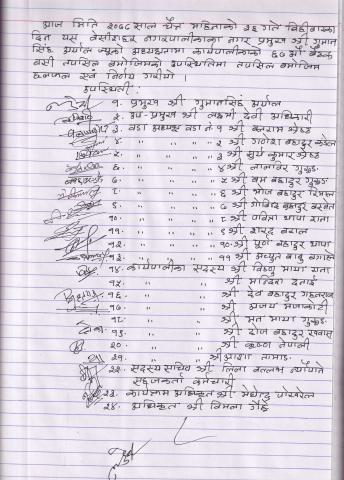 आज मिति २०७८ साल चैत्र महिनाको २४ गते बिहीबारका
दिन यस बेसीशहर नगरपालिकाका नगर प्रमुख श्री गुमान
सिंह अर्याल ज्यूको अध्यक्षतामा कार्यपालिकाको ६७ औं बैठक
बसी तपसिल बमोजिमको उपस्थितिमा तपसिल बमोजिम
छलफल एवं निर्णय गरियो ।
उपस्थिती :
१. प्रमुख श्री गुमानसिंह अर्याल
२. उप-प्रमुख श्री लक्ष्मी देवी अधिकारी
३. वडा अध्यक्ष वडा नं १ श्री बलराम श्रेष्ठ
४. " " " २ श्री गणेश बहादुर
५. " " " ३ श्री सुर्य कुमार श्रेष्ठ
६. " " " ४ श्री गुरुङ
७. " " " ५ श्री बम बहादुर गुरुङ
८. " " " ६ श्री भोज बहादुर
९. " " " ७ श्री गोविन्द बहादुर बस्नेत
१०. " " " ८ श्री पवित्रा थापा राना
११. " " " ९ श्री शरद बराल
१२. " " " १० श्री पूर्ण बहादुर थापा
१३. " " " ११ श्री अच्युत बाबु
१४. कार्यपालिका सदस्य श्री विष्णु माया राना
१५. " " श्री मन्दिरा दनाई
१६. " " श्री देव बहादुर गहतराज
१७. " " श्री अजय
१८. " " श्री मत माया गुरुङ
१९. " " श्री रोज बहादुर खवास
२०. " " श्री कृष्ण नेपाली
२१. " " श्री आशा तामाङ
२२. सदस्य सचिव श्री लिला वल्लभ न्यौपाने
सहजकर्ता कर्मचारी
२३. कार्यक्रम अधिकृत श्री मेघेन्द्र पोखरेल
२४. अधिकृत श्री विमला